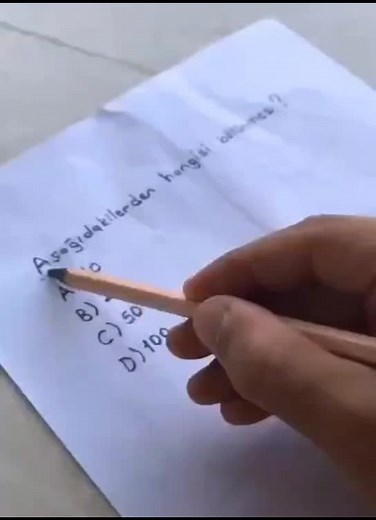 Aşağıdakilerden hangisi bölünmez?
A
B)
C) 50
D) 100